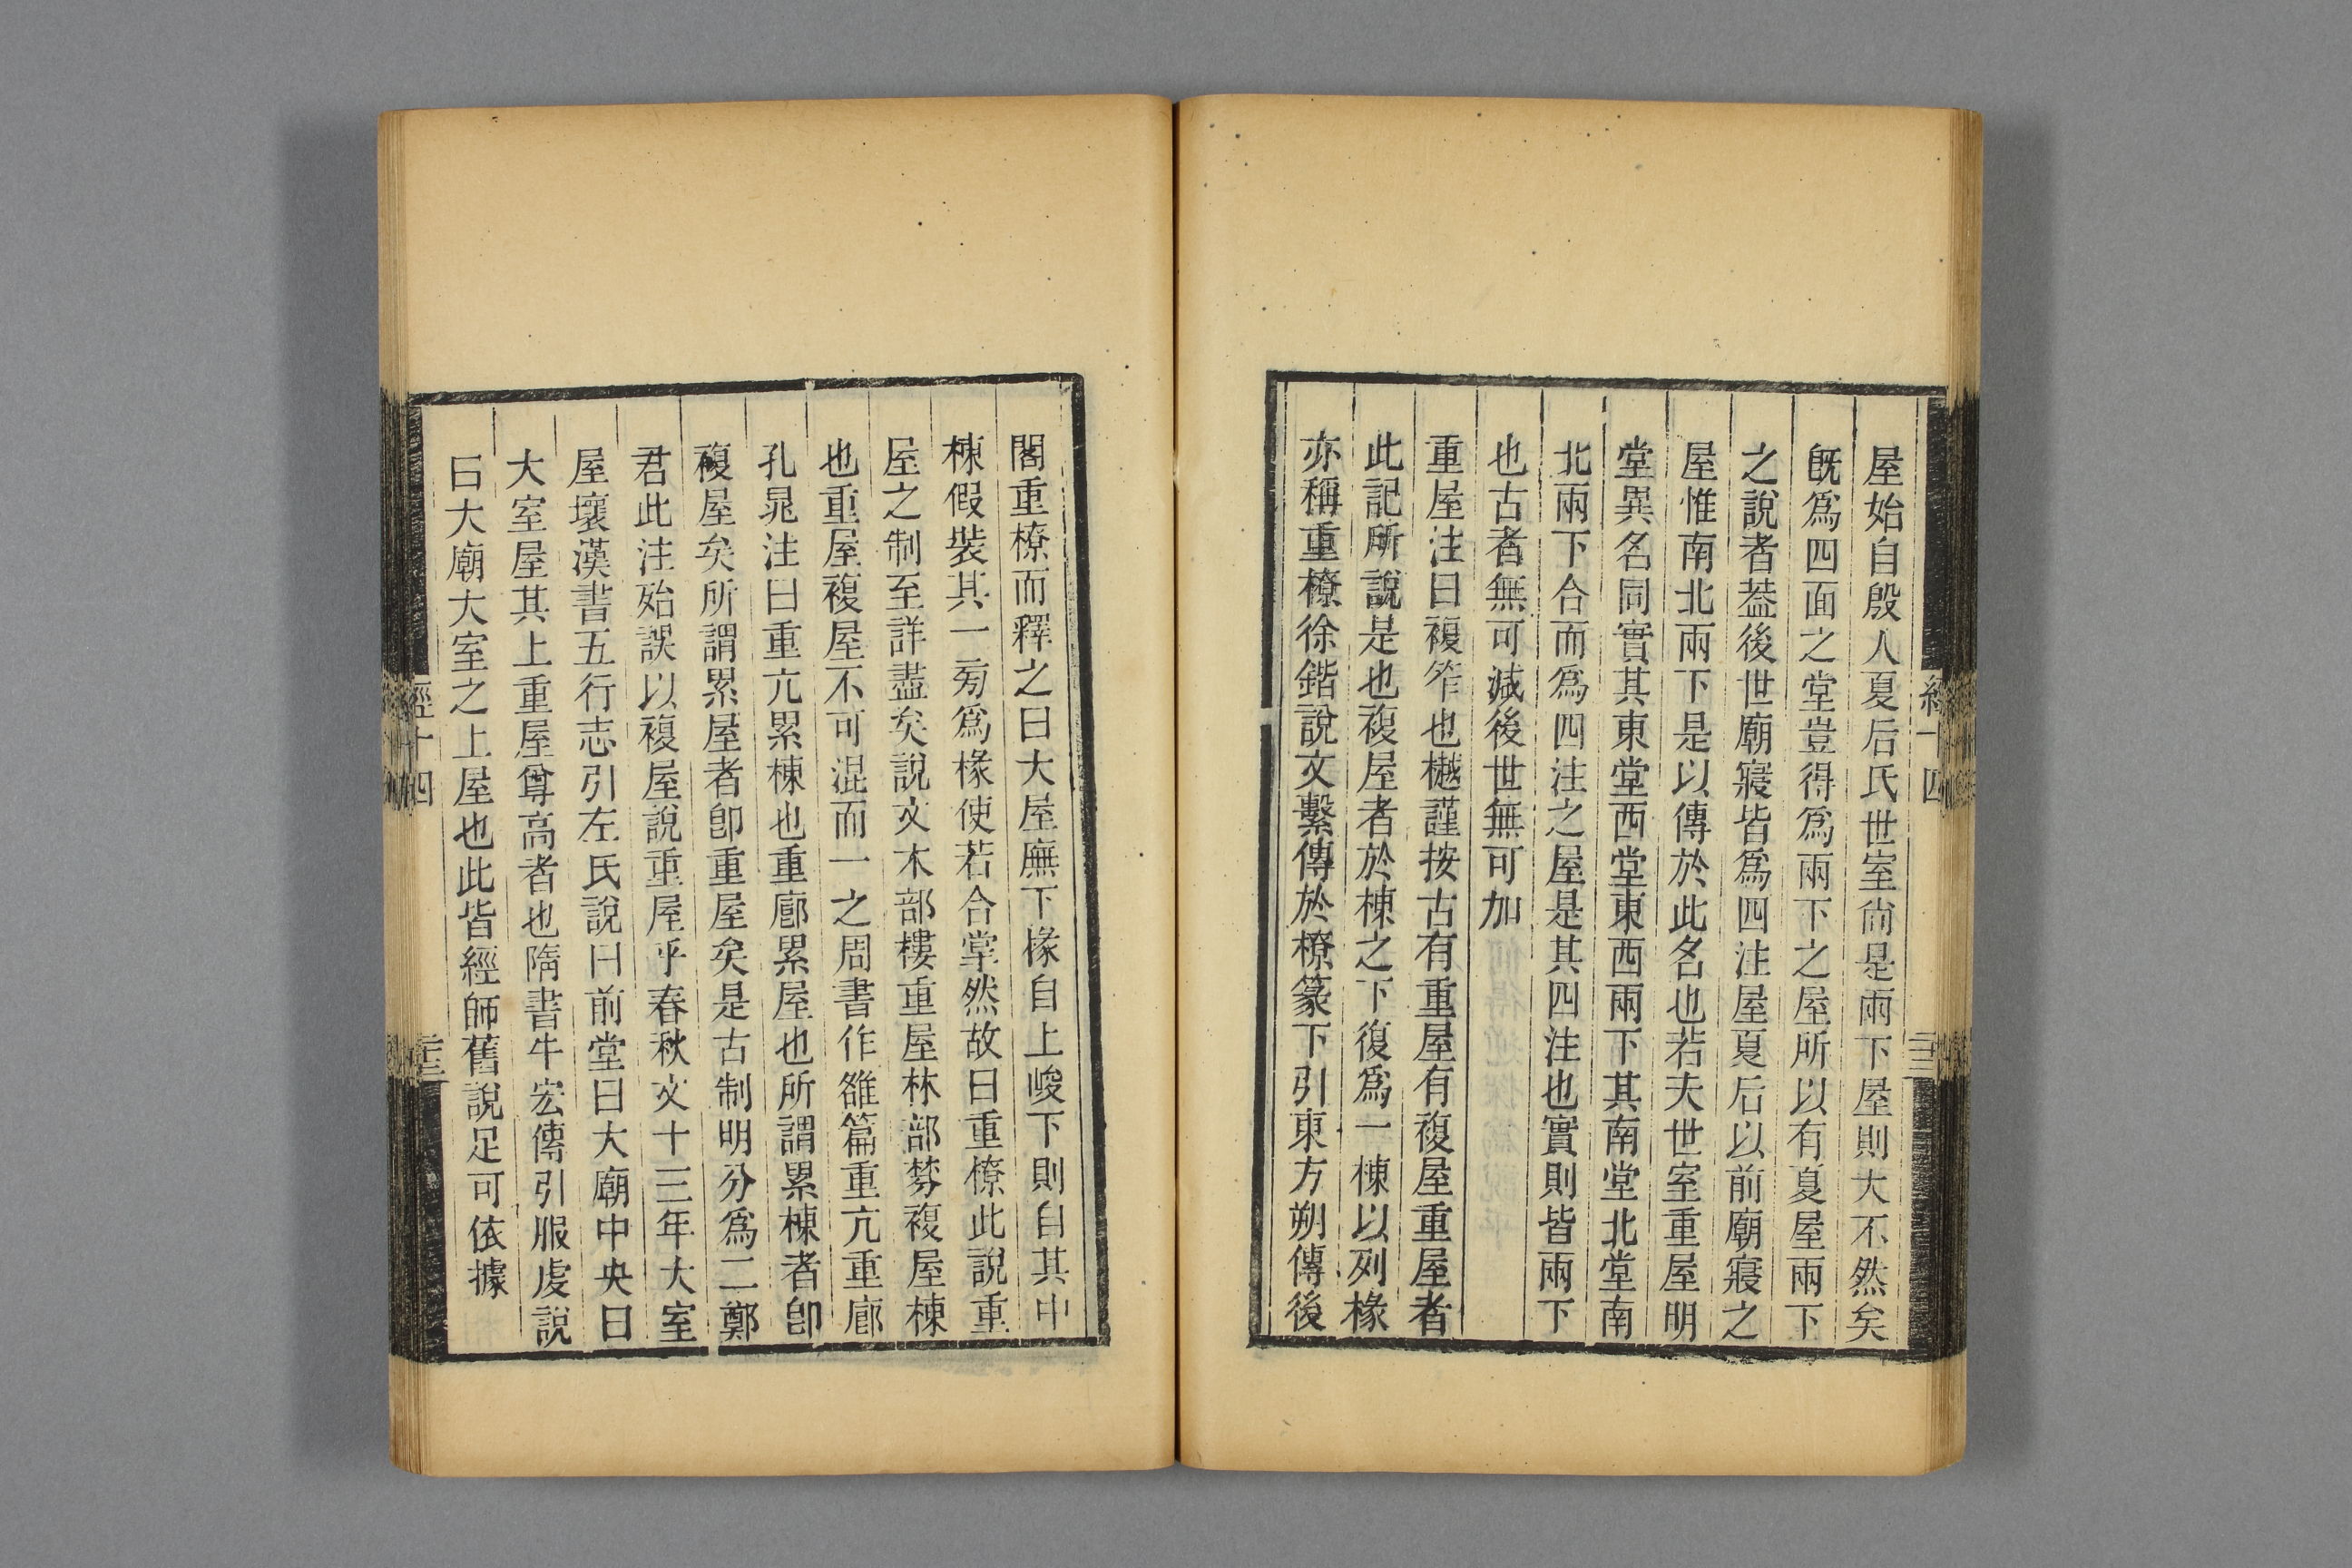 屋始自殷人夏后氏世室尙是兩下屋則大不然矣
旣爲四面之堂豈得爲兩下之屋所以有夏屋兩下
之說者葢後世廟寢皆爲四注屋夏后以前廟寢之
屋惟南北兩下是以傳於此名也若夫世室重屋明
堂異名同實其東堂西堂東西兩下其南堂北堂南
北兩下合而爲四注之屋是其四注也實則皆兩下
也古者無可減後世無可加
重屋注曰複笮也樾謹按古有重屋有複屋重屋者
此記所說是也複屋者於棟之下復爲一棟以列椽
亦稱重橑徐鍇說文繫傳於橑篆下引東方朔傳後
閣重橑而釋之曰大屋廡下椽自上峻下則自其中
棟假裝其一㫄爲椽使若合掌然故曰重橑此說重
屋之制至詳盡矣說文木部樓重屋林部棼複屋棟
也重屋複屋不可混而一之周書作雒篇重亢重廊
孔晁注曰重亢累棟也重廊累屋也所謂累棟者卽
複屋矣所謂累屋者卽重屋矣是古制明分爲二鄭
君此注殆誤以複屋說重屋乎春秋文十三年大室
屋壞漢書五行志引左氏說曰前堂曰大廟中央曰
大室屋其上重屋尊高者也隋書牛宏傳引服虔說
曰大廟大室之上屋也此皆經師舊說足可依據
經十四